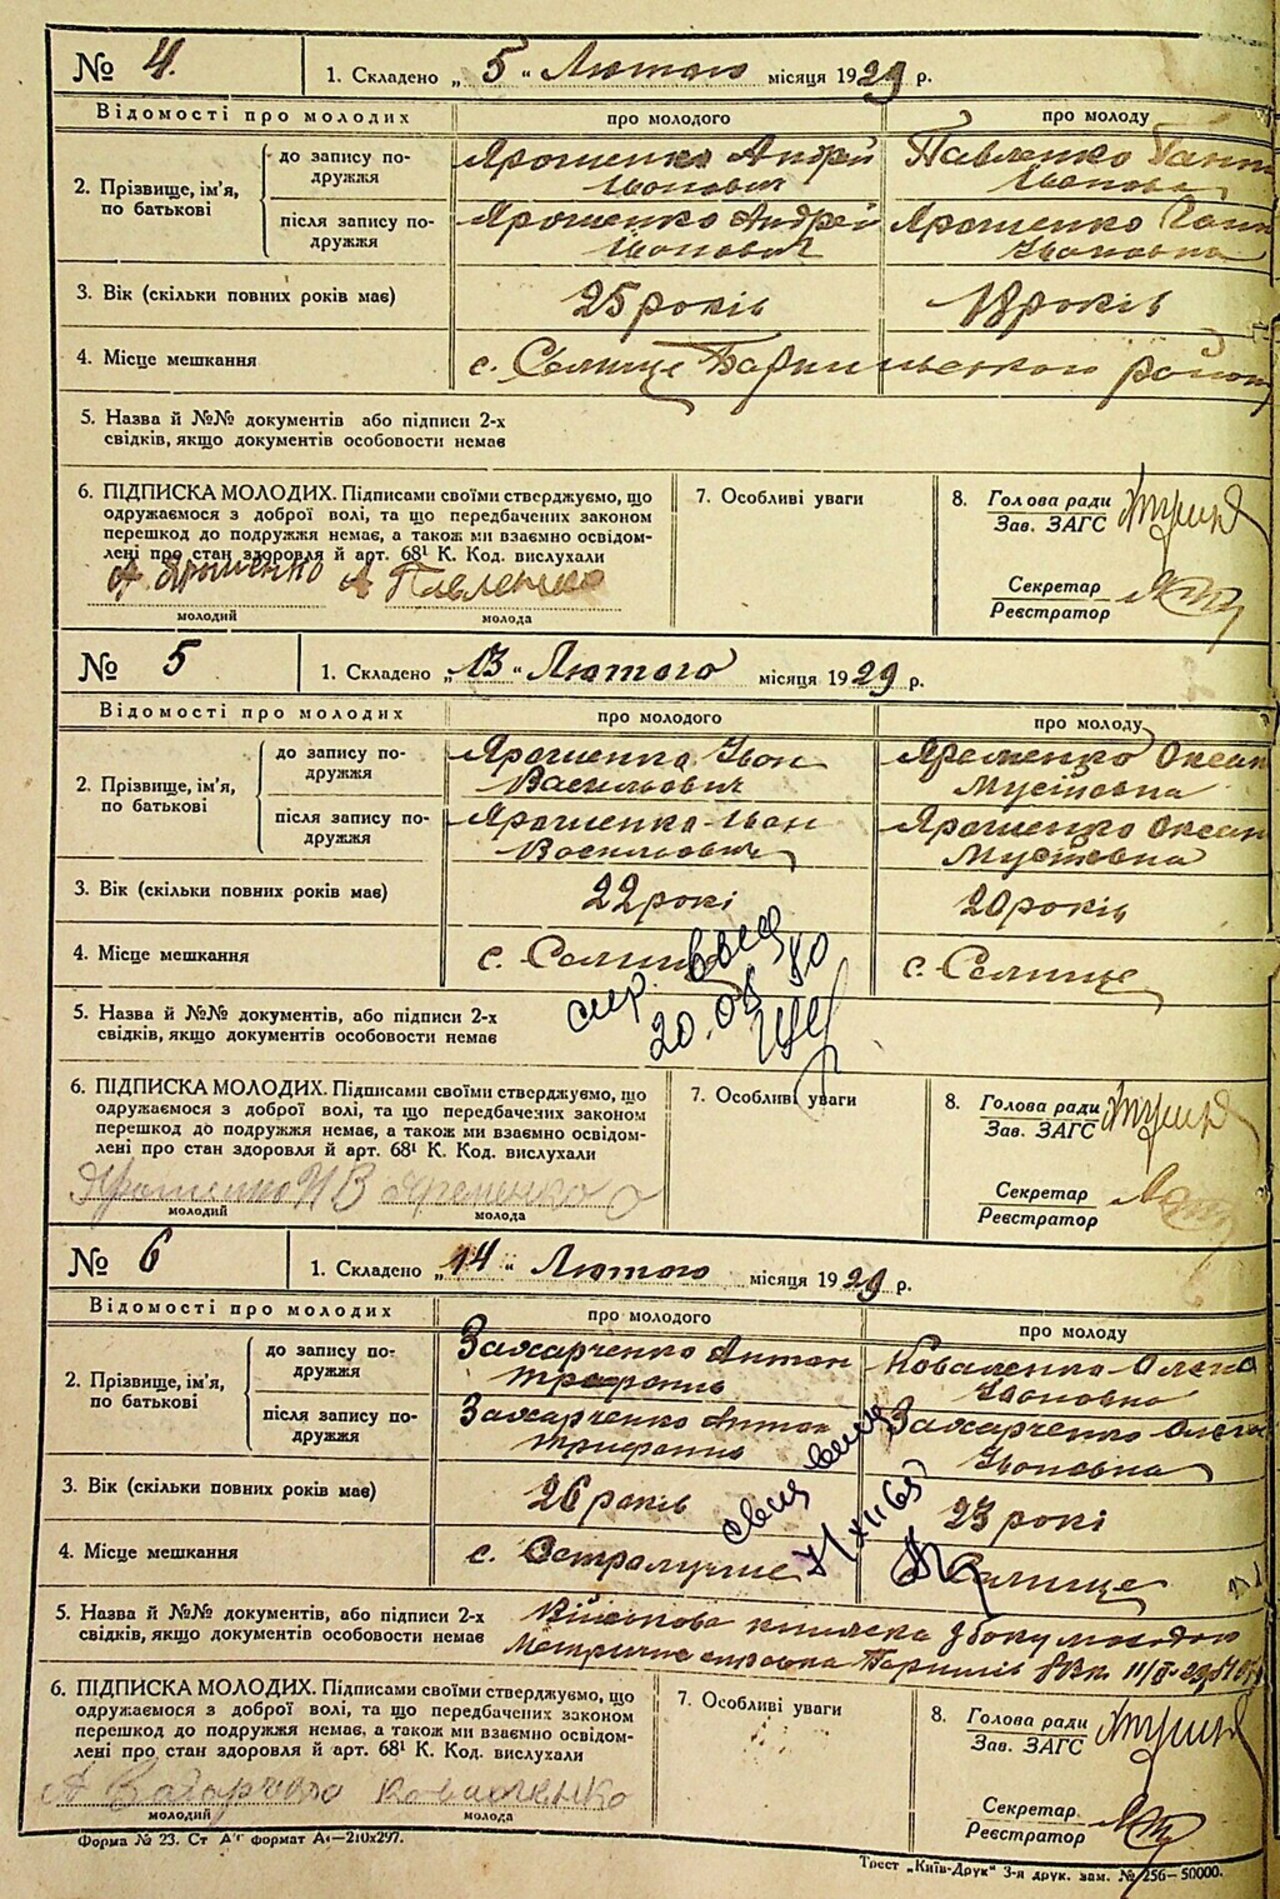 № 4. 1. Складено „5“ Лютого місяця 1929 р.
Відомості про молодих про молодого про молоду
2. Прізвище, ім'я, по батькові
до запису подружжя Ярошенко Андрій Павленко Ганн
Іванович Іванова
після запису подружжя Ярошенко Андрей Ярошенко Ганн
Іванович Івановна
3. Вік (скільки повних років має) 25 років 18 років
4. Місце мешкання с. Селище Баришського район
5. Назва й №№ документів або підписи 2-х
свідків, якщо документів особовости немає
6. ПІДПИСКА МОЛОДИХ. Підписами своїми стверджуємо, що
одружаємося з доброї волі, та що передбачених законом
перешкод до подружжя немає, а також ми взаємно освідом-
лені про стан здоровля й арт. 68¹ К. Код. вислухали
А Ярошенко А Павленко
молодий молода
7. Особливі уваги
8. Голова ради
Зав. ЗАГС
Секретар
Реєстратор
№ 5 1. Складено „13“ Лютого місяця 1929 р.
Відомості про молодих про молодого про молоду
2. Прізвище, ім'я, по батькові
до запису по-дружжя Ярошенко Іван Яременко Оксан
Васильович Мусіївна
після запису по-дружжя Ярошенко Іван Ярошенко Оксан
Васильович Мусіевна
3. Вік (скільки повних років має) 22 рокі 20 років
4. Місце мешкання с. Селище с. Селище
20.04 80
5. Назва й №№ документів, або підписи 2-х
свідків, якщо документів особовости немає
6. ПІДПИСКА МОЛОДИХ. Підписами своїми стверджуємо, що
одружаємося з доброї волі, та що передбачених законом
перешкод до подружжя немає, а також ми взаємно освідом-
лені про стан здоровля й арт. 68¹ К. Код. вислухали
Ярошенко И В Яременко О
молодий молода
7. Особливі уваги
8. Голова ради
Зав. ЗАГС
Секретар
Реєстратор
№ 6 1. Складено „14“ Лютого місяця 1929 р.
Відомості про молодих про молодого про молоду
2. Прізвище, ім'я, по батькові
до запису по-дружжя Захарченко Антон Коваленко Олена
Івановна
після запису по-дружжя Захарченко Антон Захарченко Олена
Івановна
3. Вік (скільки повних років має) 26 років 23 рокі
4. Місце мешкання с. Остролуччє Селище
5. Назва й №№ документів, або підписи 2-х Військова книжка з боку молодого
свідків, якщо документів особовости немає Метрична справка
6. ПІДПИСКА МОЛОДИХ. Підписами своїми стверджуємо, що
одружаємося з доброї волі, та що передбачених законом
перешкод до подружжя немає, а також ми взаємно освідом-
лені про стан здоровля й арт. 68¹ К. Код. вислухали
А Захарченко Коваленко
молодий молода
7. Особливі уваги
8. Голова ради
Зав. ЗАГС
Секретар
Реєстратор
Форма № 23. Ст А⁴ формат А₄—210x297.
Трест „Київ-Друк“ 3-я друк. зам. № 256—50000.